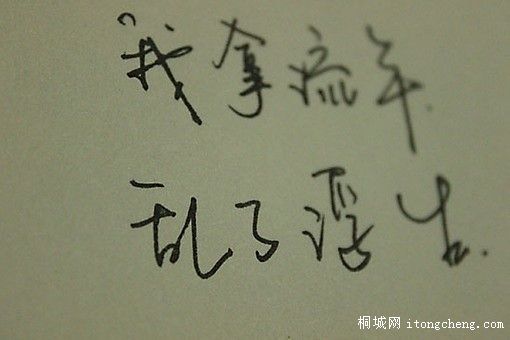 “我拿流年
乱了浮生.
桐城网 itongcheng.com